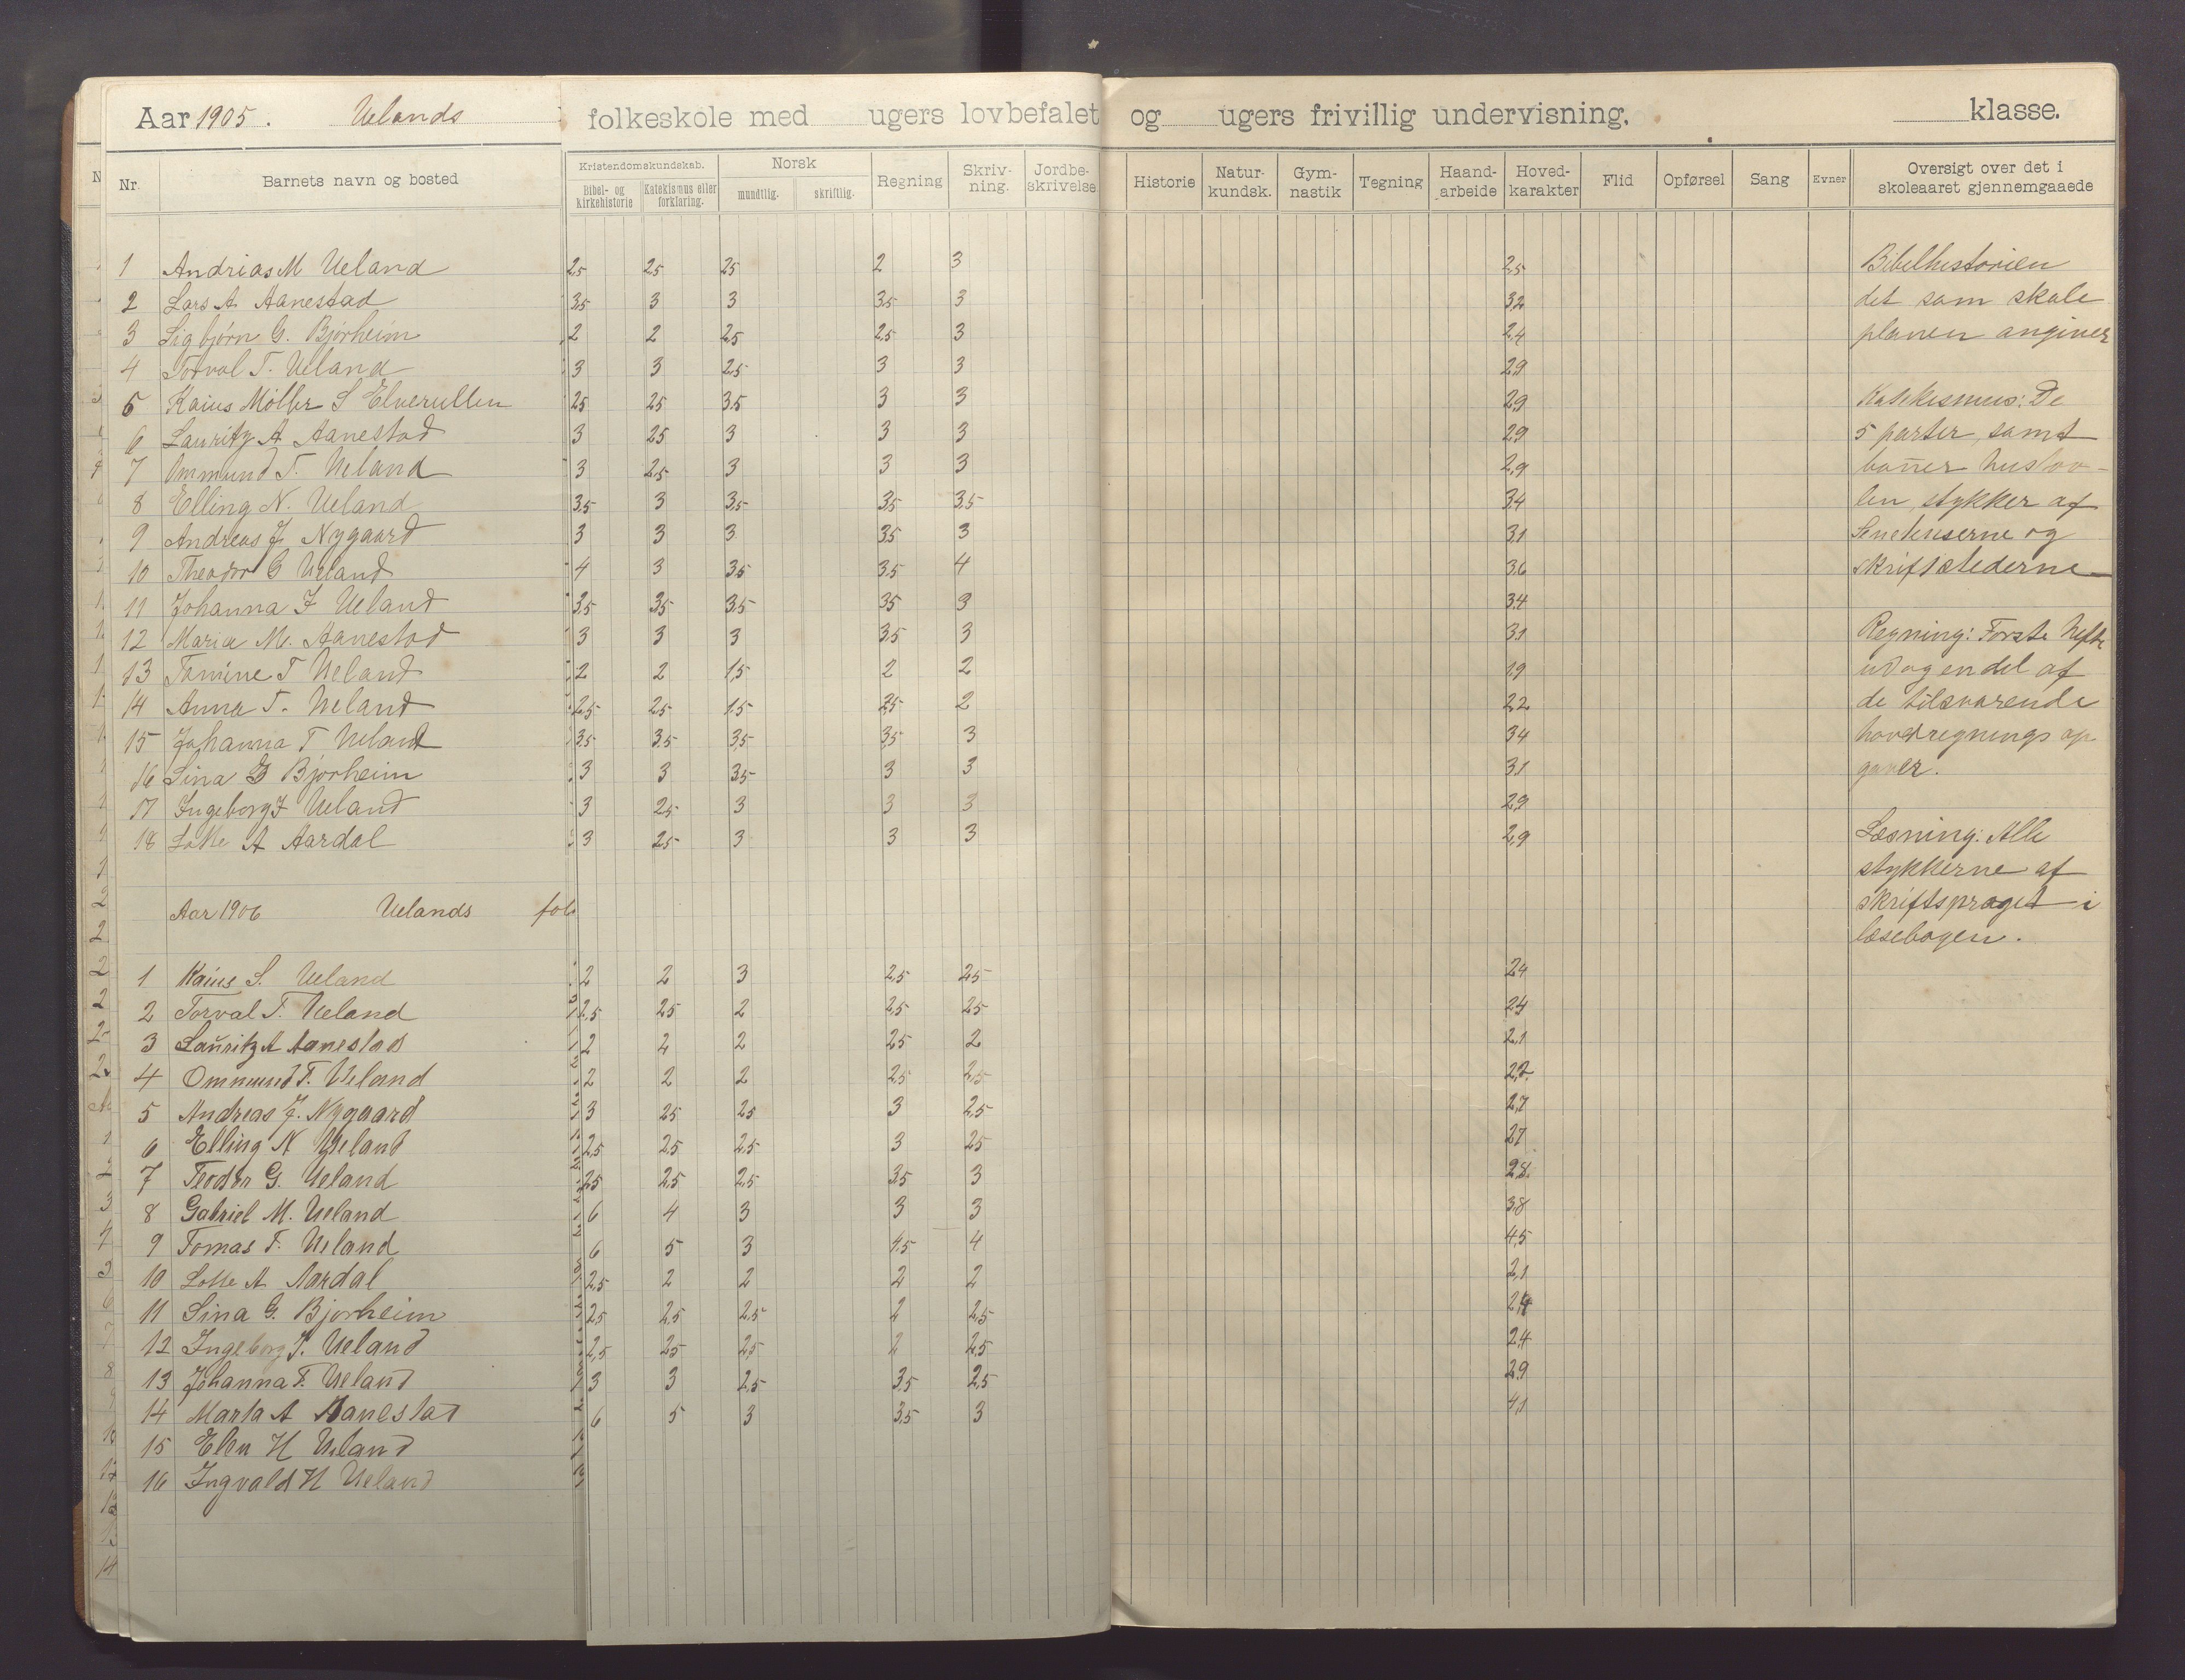 Aar 1905. Uelands folkeskole med ugers lovbefalet og ugers frivillig undervisning, klasse.
Nr. Barnets navn og bosted Kristendomskundskab. Bibel- og kirkehistorie Katekismus eller forklaring. Norsk mundtlig. skriftlig. Regning Skriv-ning. Jordbe-skrivelse Historie Natur-kundsk. Gym-nastik Tegning Haand-arbeide Hoved-karakter Flid Opførsel Sang Evner Oversigt over det i skoleaaret gjennemgaaede
1 Andrias M Ueland 2,5 2,5 2,5 2 3 2,5 Bibelhistorien
2 Lars A Aanestad 3,5 3 3 3,5 3 3,2 det som skole
3 Sigbjørn G. Bjørheim 2 2 2,5 2,5 3 2,4 planen angiver
4 Torval T. Ueland 3 3 2,5 3 3 2,9
5 Kaius Møller S 2,5 2,5 3,5 3 3 2,9 Katekismus: De
6 Lauritz A Aanestad 3 2,5 3 3 3 2,9 5 parter, samt
7 Ommund T. Ueland 3 2,5 3 3 3 2,9 hustav-
8 Elling N. Ueland 3,5 3 3,5 3,5 3,5 3,4 len, stykker af
9 Andreas J Nygaard 3 3 3 3,5 3 3,1 og
10 Theodor G Ueland 4 3 3,5 3,5 4 3,6 skriftstederne
11 Johanna J Ueland 3,5 3,5 3,5 3,5 3 3,4
12 Maria M. Aanestad 3 3 3 3,5 3 3,1 Regning: Første hefte
13 Tomine T Ueland 2 2 1,5 2 2 1,9 ud og en del af
14 Anna T. Ueland 2,5 2,5 1,5 2,5 2 2,2 de tilsvarende
15 Johanna T Ueland 3,5 3,5 3,5 3,5 3 3,4 hovedregnings op
16 Sina G Bjørheim 3 3 3,5 3 3 3,1 gaver.
17 Ingeborg J Ueland 3 2,5 3 3 3 2,9
18 Lotte A Aardal 3 2,5 3 3 3 2,9 Læsning: Alle
stykkerne af
Aar 1906 Uelands fol skriftsproget i
læsebogen.
1 Kaius S. Ueland 2 2 3 2,5 2,5 2,4
2 Torval T. Ueland 2,5 2,5 2 2,5 2,5 2,4
3 Lauritz A Aanestad 2 2 2 2,5 2 2,1
4 Ommund T. Ueland 2 2 2 2,5 2,5 2,2
5 Andreas J. Nygaard 3 2,5 2,5 3 2,5 2,7
6 Elling N Ueland 2,5 2,5 2,5 3 2,5 2,7
7 Teodor G. Ueland 2,5 2,5 2,5 3,5 3 2,8
8 Gabriel M. Ueland 6 4 3 3 3 3,8
9 Tomas T. Ueland 6 5 3 4,5 4 4,5
10 Lotte A Aardal 2,5 2 2 2 2 2,1
11 Sina G. Bjørheim 2,5 2,5 2,5 2 2,5 2,4
12 Ingeborg J. Ueland 2,5 2,5 2,5 2 2,5 2,4
13 Johanna T. Ueland 3 3 2,5 3,5 2,5 2,9
14 Marta A Aanestad 6 5 3 3,5 3 4,1
15 Elen H Ueland
16 Ingvald H Ueland